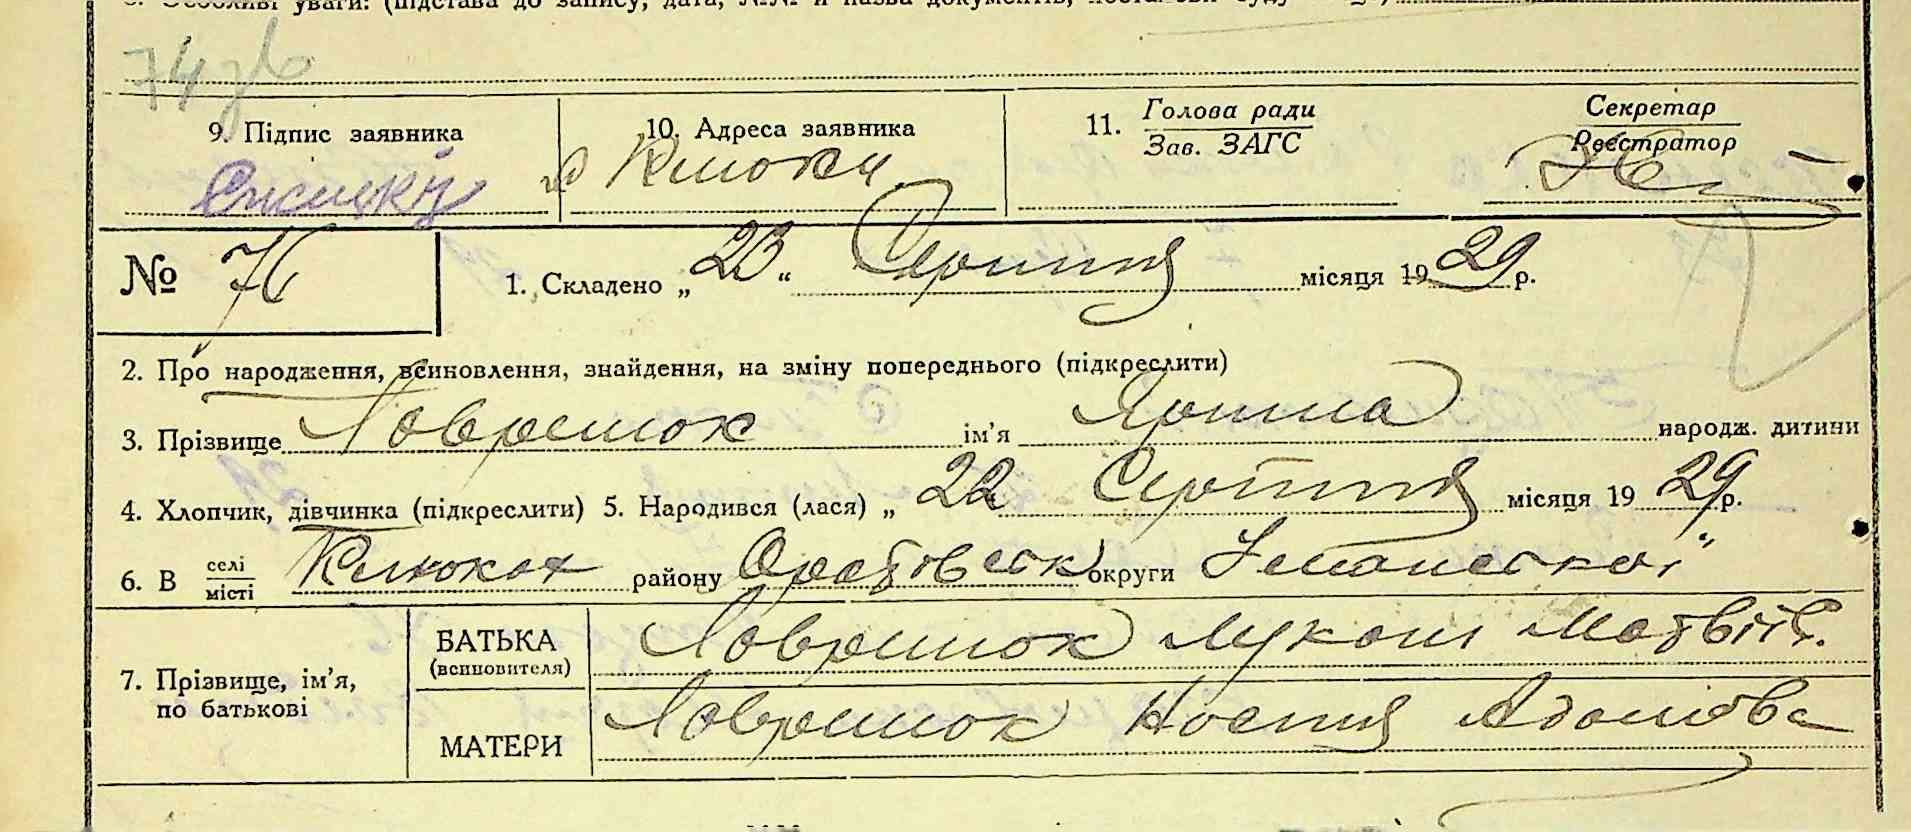 8. Особливі уваги: (підстава до запису, дата, №№ й назва документів, постанови суду
74
9. Підпис заявника
10. Адреса заявника
11. Голова ради
Зав. ЗАГС
Секретар
Реєстратор
с Клюки
№ 76
1. Складено „23“ Серпня місяця 1929 р.
2. Про народження, всиновлення, знайдення, на зміну попереднього (підкреслити)
3. Прізвище Лавренюк ім’я Ярина народж. дитини
4. Хлопчик, дівчинка (підкреслити) 5. Народився (лася) „22 Серпня місяця 1929 р.
6. В селі
місті
Клюках району округи Уманської
7. Прізвище, ім’я,
по батькові
БАТЬКА
(всиновителя)
Лавренюк Лукаш Матвіїв.
МАТЕРИ
Лавренюк Адамова